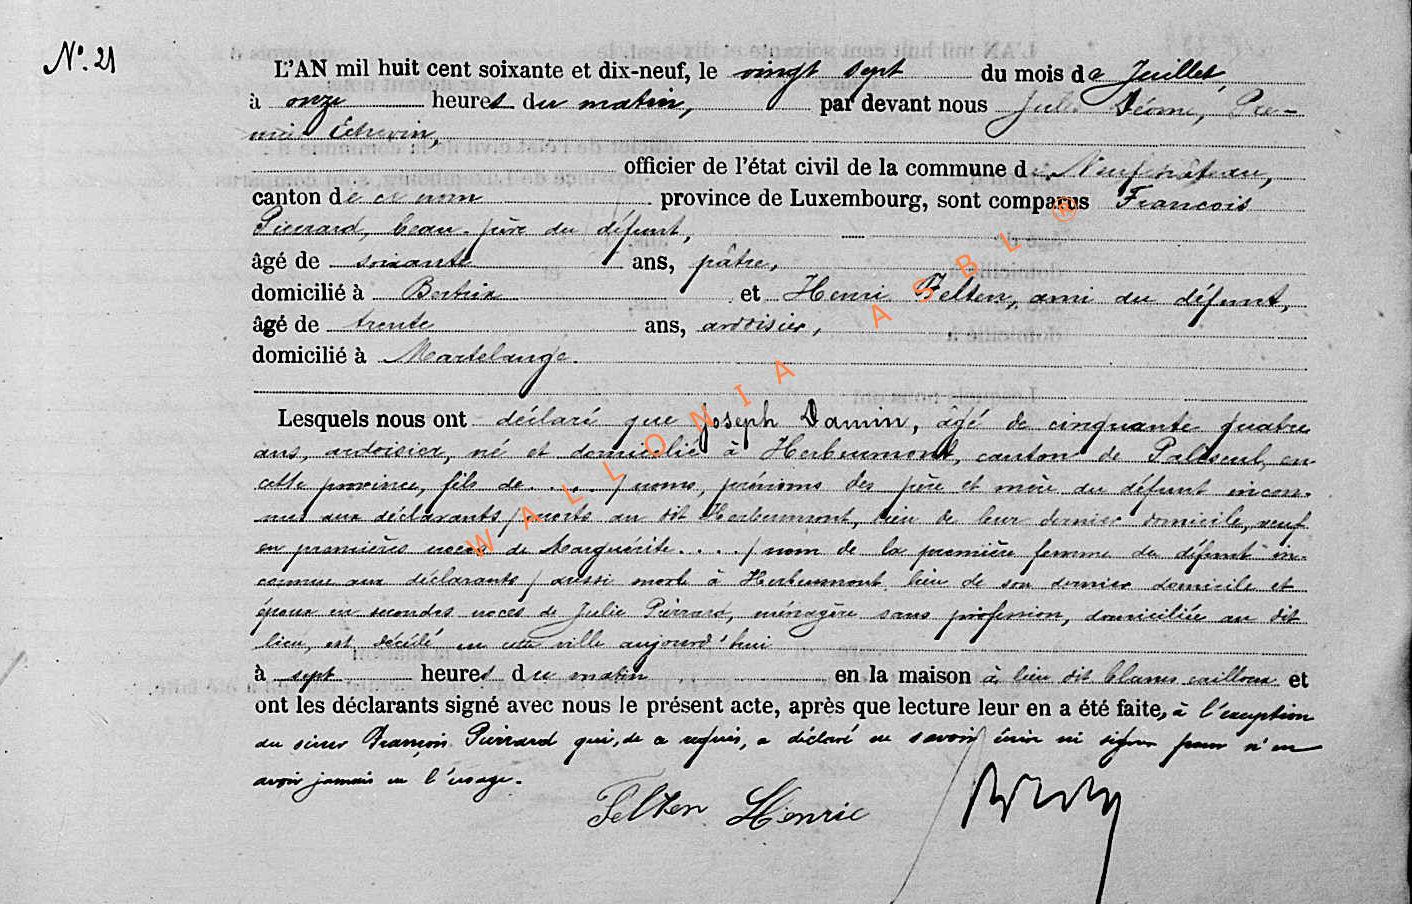 N°. 21
L'AN mil huit cent soixante et dix-neuf, le vingt sept du mois de Juillet,
à onze heures du matin, par devant nous Jules Déome, Pre-
mier Echevin,
officier de l'état civil de la commune de Neufchâteau,
canton de ce nom province de Luxembourg, sont comparus François
Pierrard, beau-père du défunt,
âgé de soixante ans, pâtre,
domicilié à Bertrix et Henri Felten, ami du défunt,
âgé de trente ans, ardoisier,
domicilié à Martelange.
Lesquels nous ont déclaré que Joseph Damin, âgé de cinquante quatre
ans, ardoisier, né et domicilié à Herbeumont, canton de Paliseul, en
cette province, fils de . . . . / noms, prénoms des père et mère du défunt incon-
nus aux déclarants / morts au dit Herbeumont, lieu de leur dernier domicile, veuf
en premières noces de Marguérite . . . . / nom de la première femme du défunt in-
connu aux déclarants / aussi morte à Herbeumont lieu de son dernier domicile et
époux en secondes noces de Julie Pierrard, ménagère sans profession, domiciliée au dit
lieu, est décédé en cette ville aujourd'hui
à sept heures du matin en la maison à lieu dit blancs cailloux et
ont les déclarants signé avec nous le présent acte, après que lecture leur en a été faite, à l'exception
du sieur François Pierrard qui, de ce requis, a déclaré ne savoir écrire ni signer pour n'en
avoir jamais eu l'usage.
Felten Henrie
WALLONIA ASBL ®